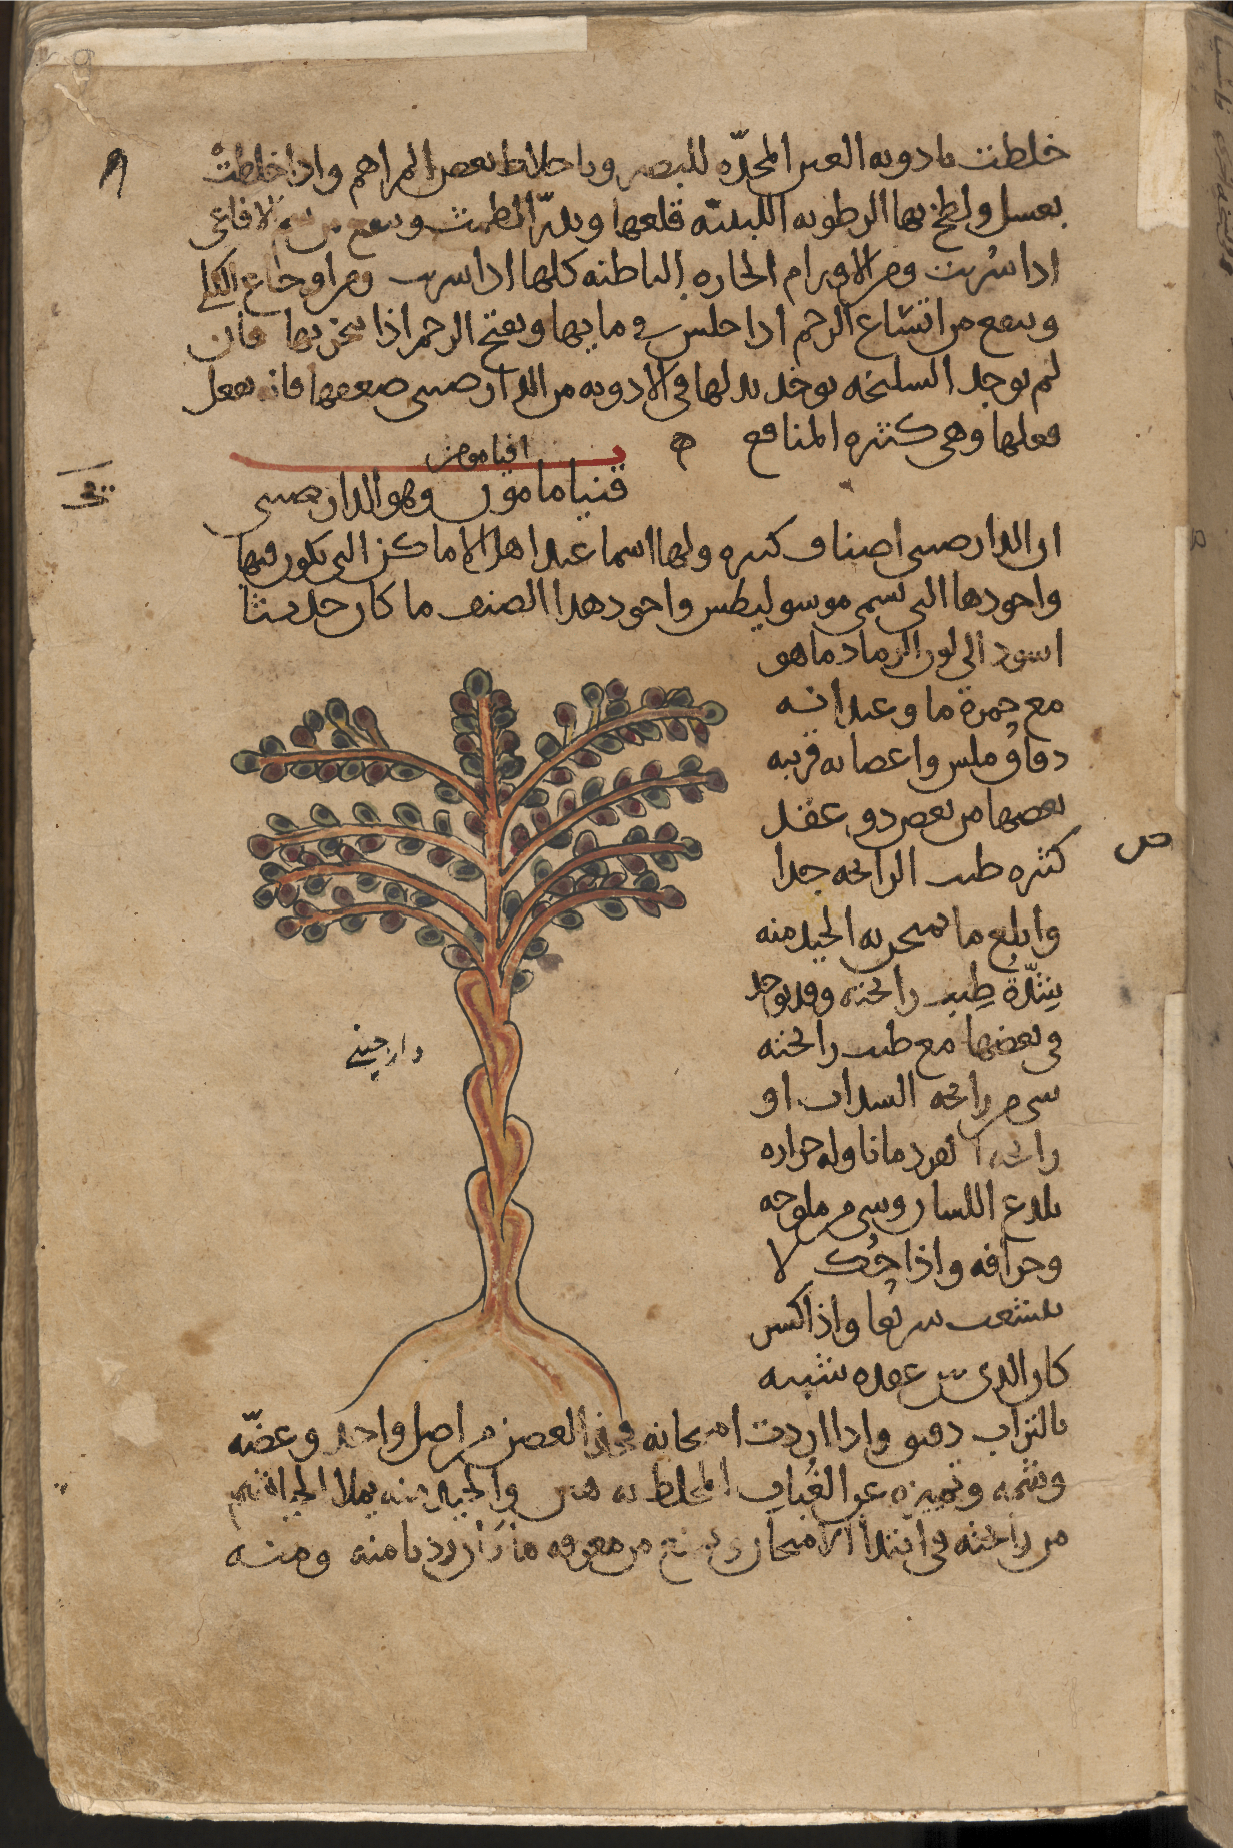 خلطت بادوية العين المحدّه للبصر وباخلاط بعض المراهم واذا خلطتْ
بعسل ولطخ بها الرطوبه اللبنيّه قلعها وتدرّ الطمث وتنفع من سم الافاعى
اذا شُربت ومن الاورام الحاره الباطنه كلها اذا شربت ومن اوجاع الكلى
وتنفع من اتساع الرحم اذا جلس فى مايها وبفتح الرحم اذا تبخر بها فان
لم توجد السليخه يوخذ بدلها فى الادويه من الدارصينى ضعفها فانه يفعل
فعلها وهى كثيره المنافع
قنياما مون وهو الدارصينى
ان الدارصينى اصناف كثيره ولها اسما عند اهل الاماكن التى تكون فيها
واجودها التى تسمى موسوليطس واجود هذا الصنف ما كان حديثا
اسود الى لون الرماد ما هو
مع حمرة ما وعيدانه
دقاق ملس واغصانه قريبه
بعضها من بعض ذو عقد
كثيره طيب الرائحه جدا
وابلغ ما يمتحن به الجيد منه
شِدّة طِيب رائحته وقد يوجد
فى بعضها مع طيب رائحته
شى من رائحه السذاب او
رائحه القردمانا وله حراره
يلدع اللسان وشى من ملوحه
وحرافه واذا حُك لا
يتشعب سريعا واذا كسر
كان الذى بين عقده شبيه
دار چينى
بالتراب دقيق واذا اردت امتحانه فخذ الغصن من اصل واحد وعضّه
وشمه وتميزه عن الفُتات المخلط به هين والجيد منه يملا الخياشيم
من رائحته فى ابتدا الامتحان ويمنع من معرفه ما كان رديا منه ومنه